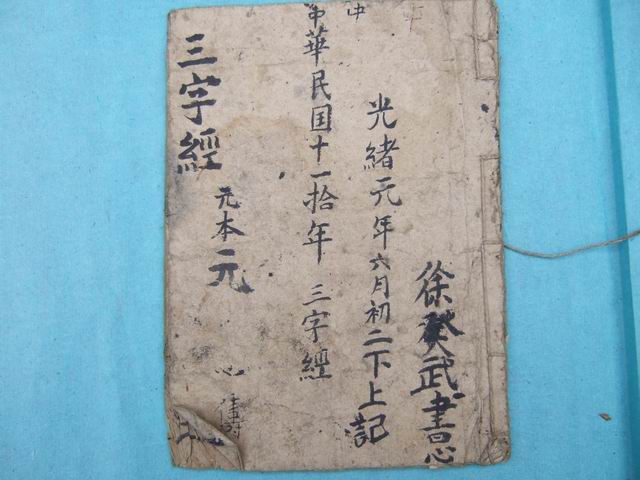 徐癸武書
光緒元年六月初二下上記
中
中華民国十一拾年 三字經
元本元
心
三字經